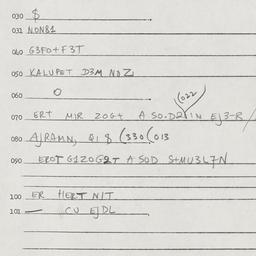 030 $
031 NONB1
040 G3FO+F3T
050 KALUPET D3M NOZ
060 O
(022
070 ERT MIR ZOGT A SO.D21IN EJ3-R/
080 AJRAMN, QI 8 (330(013
090 EROT G1ZOG2T A SOD S+MU3L7N
100 ER HERT NIT
101 — CU EJDL